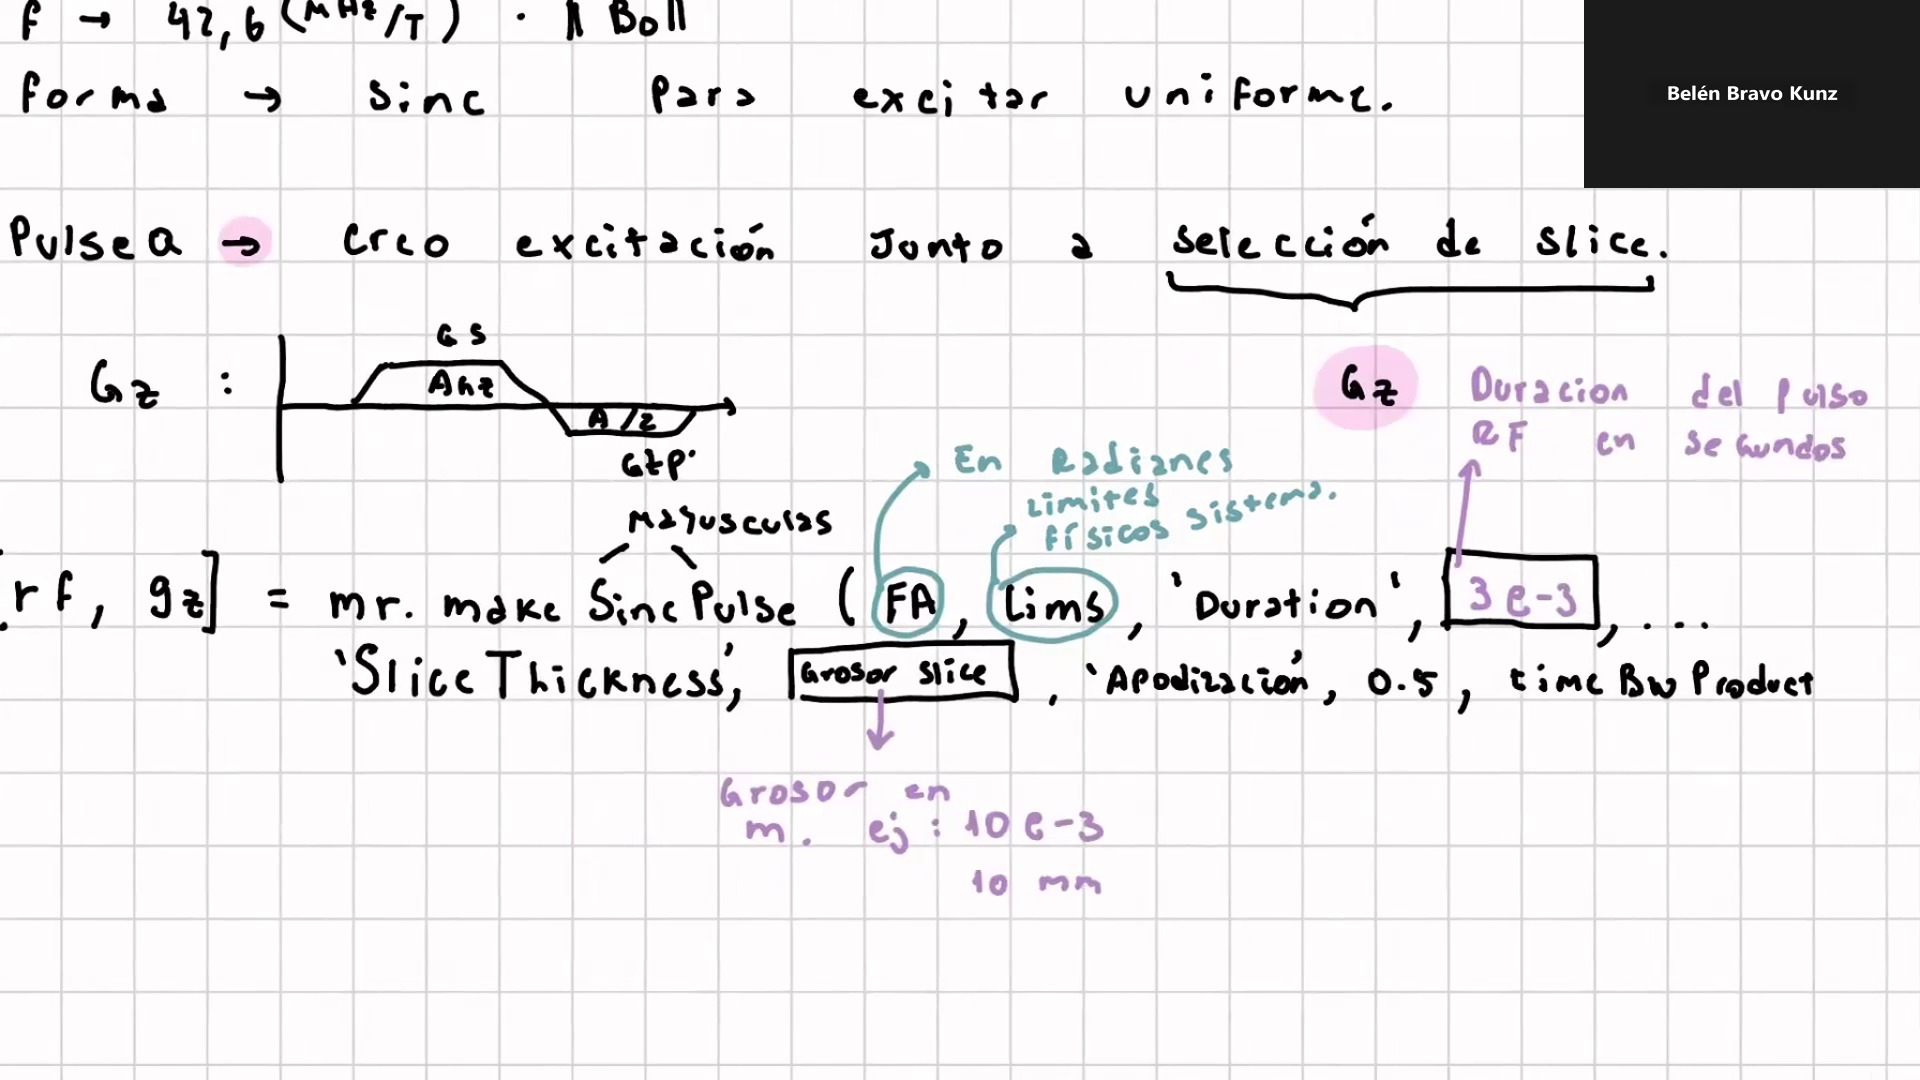 f → 42,6 (MHz/T) · || Bo ||
forma → sinc para excitar uniforme.
Belén Bravo Kunz
Pulseq → creo excitación junto a selección de slice.
Gs
Gz :
AGz
A/2
Gzp.
Gz
Duracion del pulso
RF en segundos
En Radianes
Limites
físicos sistema.
Mayusculas
[rf, gz] = mr. make SincPulse (FA, Lims, 'Duration', 3e-3, ...
'SliceThickness', Grosor slice, 'Apodización', 0.5, time Bw Product
Grosor en
m. ej : 10 e-3
10 mm